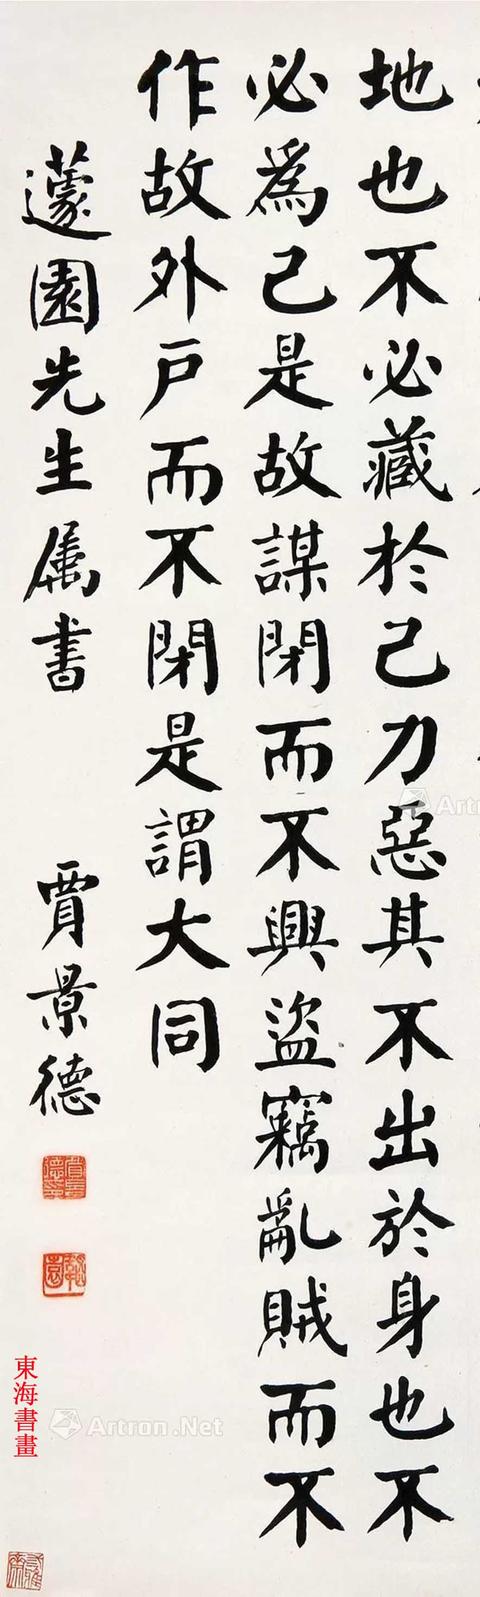 地也不必藏於己力惡其不出於身也不
必為己是故謀閉而不興盜竊亂賊而不
作故外戶而不閉是謂大同
蘧園先生属書
賈景德
東海書畫
Artron.Net